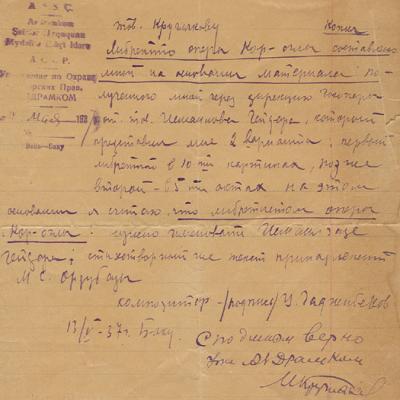 A. S. Ş.
Azdramkom
A. C. C. P.
Управление по Охране
Авторских Прав.
АЗДРАМКОМ
193
Баян-Баку
Тов. Кругликову
Копия
Либретто оперы Кор-оглы составлено
мной на основании материала по-
лученного мной через дирекцию Госоперы
от тов. Исмаилова Гейдара, который
представил мне 2 варианта; первый
либретто в 10ти картинах, позже
второй - 5ти актах на этом
основании я считаю что либреттистом оперы
Кор-оглы нужно именовать Исмаилзаде
Гейдара; стихотворный же текст принадлежит
М. С. Ордубады
композитор - /подпись/ У. Гаджибеков
13/V-37г. Баку.
С подлинным верно